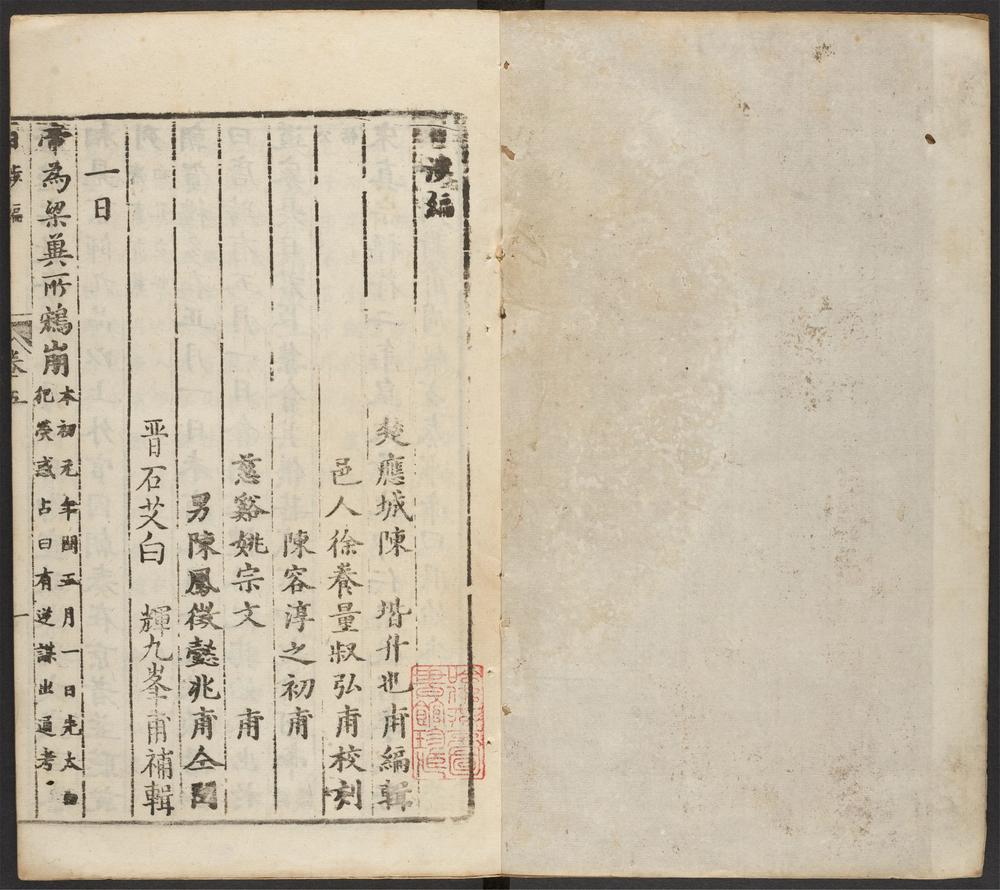 日涉編
楚應城陳 堦升也甫編輯
邑人徐養量叔弘甫校刻
陳容淳之初甫
慈谿姚宗文 甫
男陳鳳徴懿兆甫仝閱
晋石艾白 輝九峯甫補輯
一日
帝為梁兾所鴆崩本初元年閏五月一日先太白
犯熒惑占曰有逆謀出通考
日涉編 卷五 一